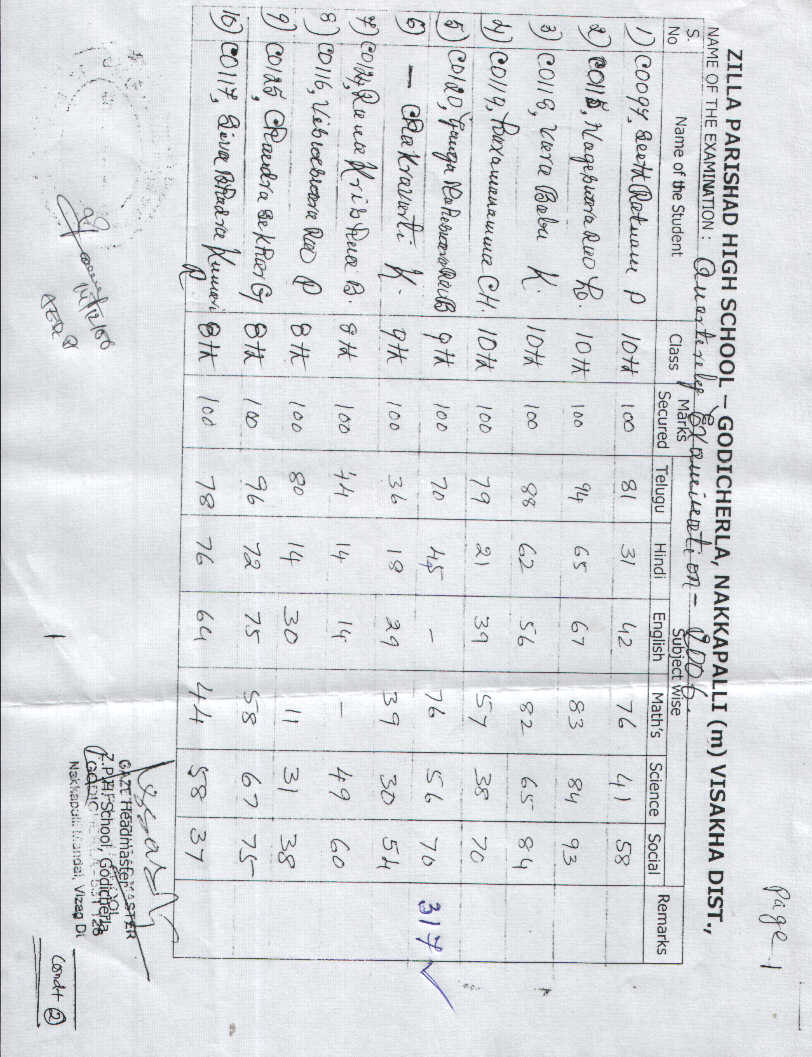 Page 1
ZILLA PARISHAD HIGH SCHOOL – GODICHERLA, NAKKAPALLI (m) VISAKHA DIST.,
NAME OF THE EXAMINATION : Quarterly Examination - 2008.
S. No Name of the Student Class Marks Secured Subject Wise Remarks
Telugu Hindi English Math's Science Social
1) C0097, Seeth Ratnam P 10th 100 81 31 42 76 41 58
2) C0115, Nageswara Rao 10th 100 94 65 67 83 84 93
3) C0118, Vara Babu K. 10th 100 88 62 56 82 65 84
4) C0119, CH. 10th 100 79 21 39 57 38 70
5) C0120, Ganga 9th 100 70 45 - 76 56 70 317 ✓
6) — Chakravarti K. 9th 100 36 18 29 39 30 54
7) Rama Krishna B. 8th 100 44 14 14 - 49 60
8) C0116, Visweswara Rao P 8th 100 80 14 30 11 31 38
9) C0125, Chandra Sekhar G 8th 100 96 72 75 58 67 75
10) C0117, Siva Bhadra Kumari R 8th 100 78 76 64 44 58 37
1
GAZT Headmaster
Z.P.H. School, Godicherla
Nakkapalli Mandal, Vizag Dt
Contd ②